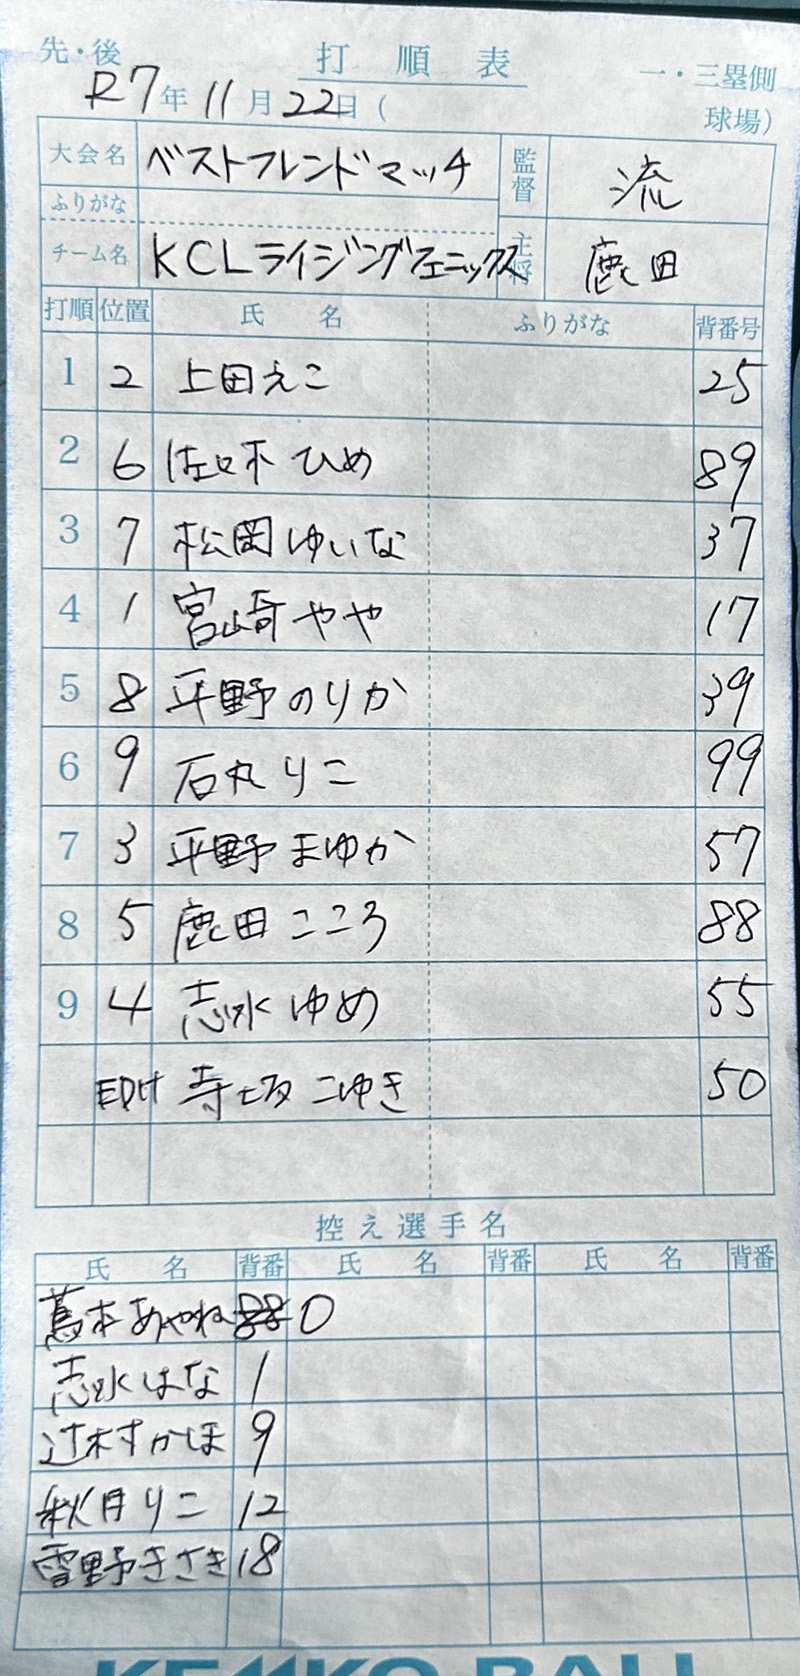 先・後 打順表 一・三塁側
R7年 11月 22日( 球場)
大会名 ベストフレンドマッチ 監督 流
ふりがな
チーム名 KCLライジングフェニックス 主将 鹿田
打順 位置 氏名 ふりがな 背番号
1 2 上田えこ 25
2 6 佐々木 ひめ 89
3 7 松岡 ゆいな 37
4 1 宮崎 やや 17
5 8 平野 のりか 39
6 9 石丸 りこ 99
7 3 平野 まゆか 57
8 5 鹿田 こころ 88
9 4 志水 ゆめ 55
EDH 寺坂 こゆき 50
控え選手名
氏名 背番 氏名 背番 氏名 背番
蔦本 あやね 88 0
志水 はな 1
辻村 かほ 9
秋月 りこ 12
雪野 きさき 18
KENKO BALL